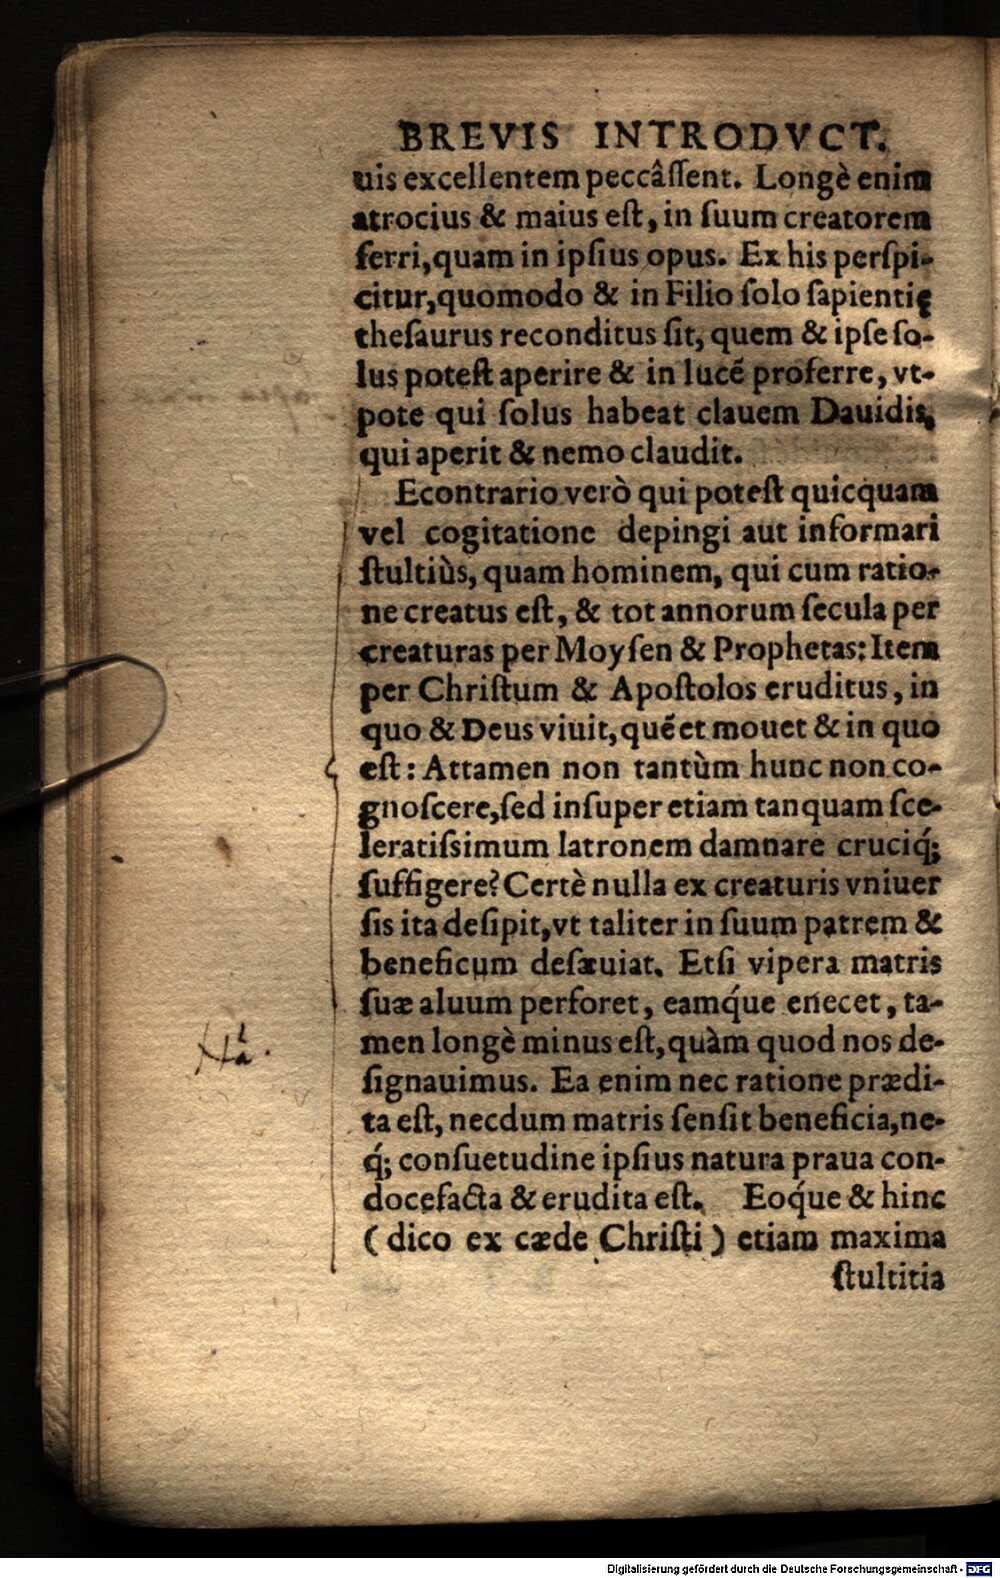 BREVIS INTRODVCT.
uis excellentem peccâſſent. Longè enim
atrocius & maius eſt, in ſuum creatorem
ferri, quam in ipſius opus. Ex his perſpi-
citur, quomodo & in Filio ſolo ſapientię
theſaurus reconditus ſit, quem & ipſe ſo-
lus poteſt aperire & in lucē proferre, vt-
pote qui ſolus habeat clauem Dauidis,
qui aperit & nemo claudit.
Econtrario verò qui poteſt quicquam
vel cogitatione depingi aut informari
ſtultiùs, quam hominem, qui cum ratio-
ne creatus eſt, & tot annorum ſecula per
creaturas per Moyſen & Prophetas: Item
per Chriſtum & Apoſtolos eruditus, in
quo & Deus viuit, quē et mouet & in quo
eſt: Attamen non tantùm hunc non co-
gnoſcere, ſed inſuper etiam tanquam ſce-
leratiſsimum latronem damnare cruciq́;
ſuffigere? Certè nulla ex creaturis vniuer
ſis ita deſipit, vt taliter in ſuum patrem &
beneficum deſæuiat. Etſi vipera matris
ſuæ aluum perforet, eamq́ue enecet, ta-
men longè minus eſt, quàm quod nos de-
ſignauimus. Ea enim nec ratione prædi-
ta eſt, necdum matris ſenſit beneficia, ne-
q́; conſuetudine ipſius natura praua con-
docefacta & erudita eſt. Eoq́ue & hinc
( dico ex cæde Chriſti ) etiam maxima
ſtultitia
Digitalisierung gefördert durch die Deutsche Forschungsgemeinschaft - DFG